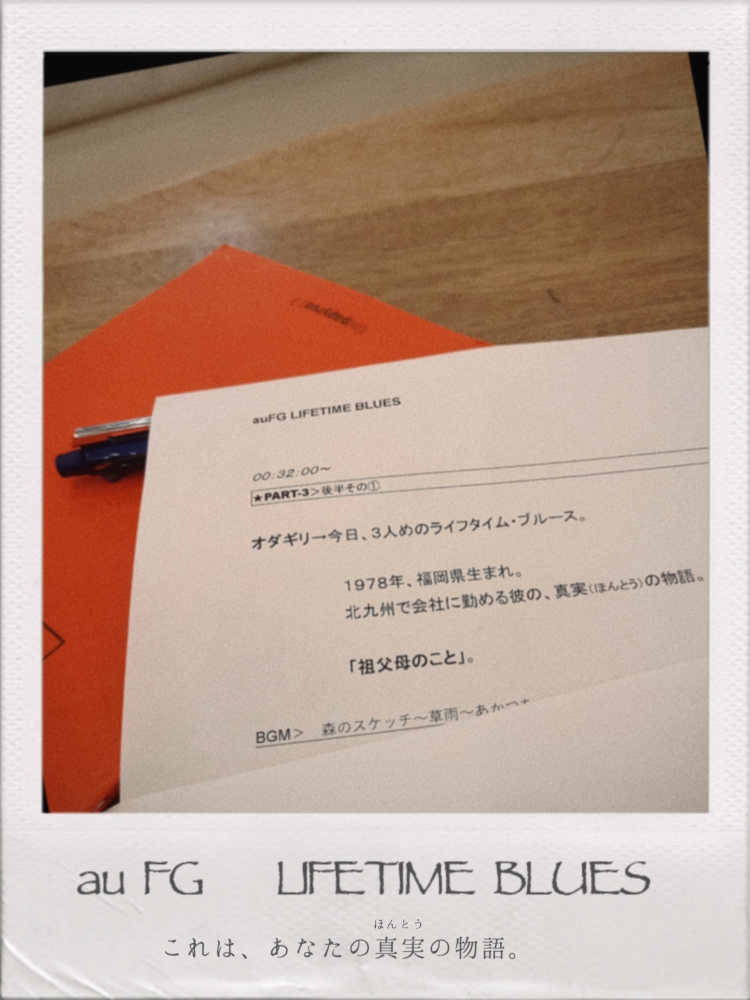 auFG LIFETIME BLUES
00:32:00〜
★PART-3＞後半その①
オダギリ→今日、3人めのライフタイム・ブルース。
1978年、福岡県生まれ。
北九州で会社に勤める彼の、真実(ほんとう)の物語。
「祖父母のこと」。
BGM＞ 森のスケッチ〜草雨〜あかつ
au FG LIFETIME BLUES
ほんとう
これは、あなたの真実の物語。